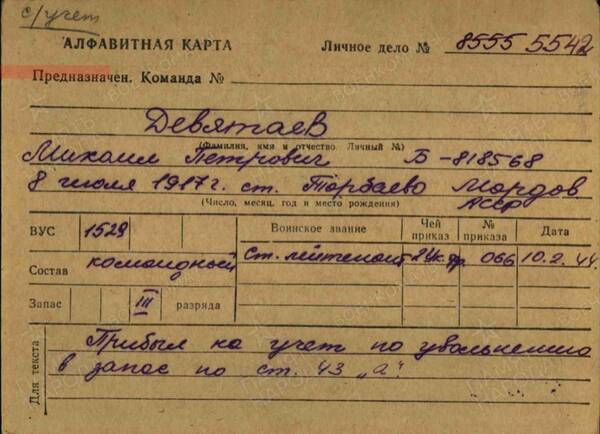 с/учет
АЛФАВИТНАЯ КАРТА Личное дело № 8555 5542
Предназначен. Команда №
Девятаев
(Фамилия, имя и отчество Личный №)
Михаил Петрович Б-818568
8 июля 1917 г. ст. Торбаево Мордов. АССР
(Число, месяц, год и место рождения)
ВУС 1529 Воинское звание Чей приказ № приказа Дата
Состав командный ст. лейтенант 2 Ук. фр. 066 10.2.44.
Запас III разряда
Для текста
Прибыл на учет по увольнению
в запас по ст. 43 „а“.